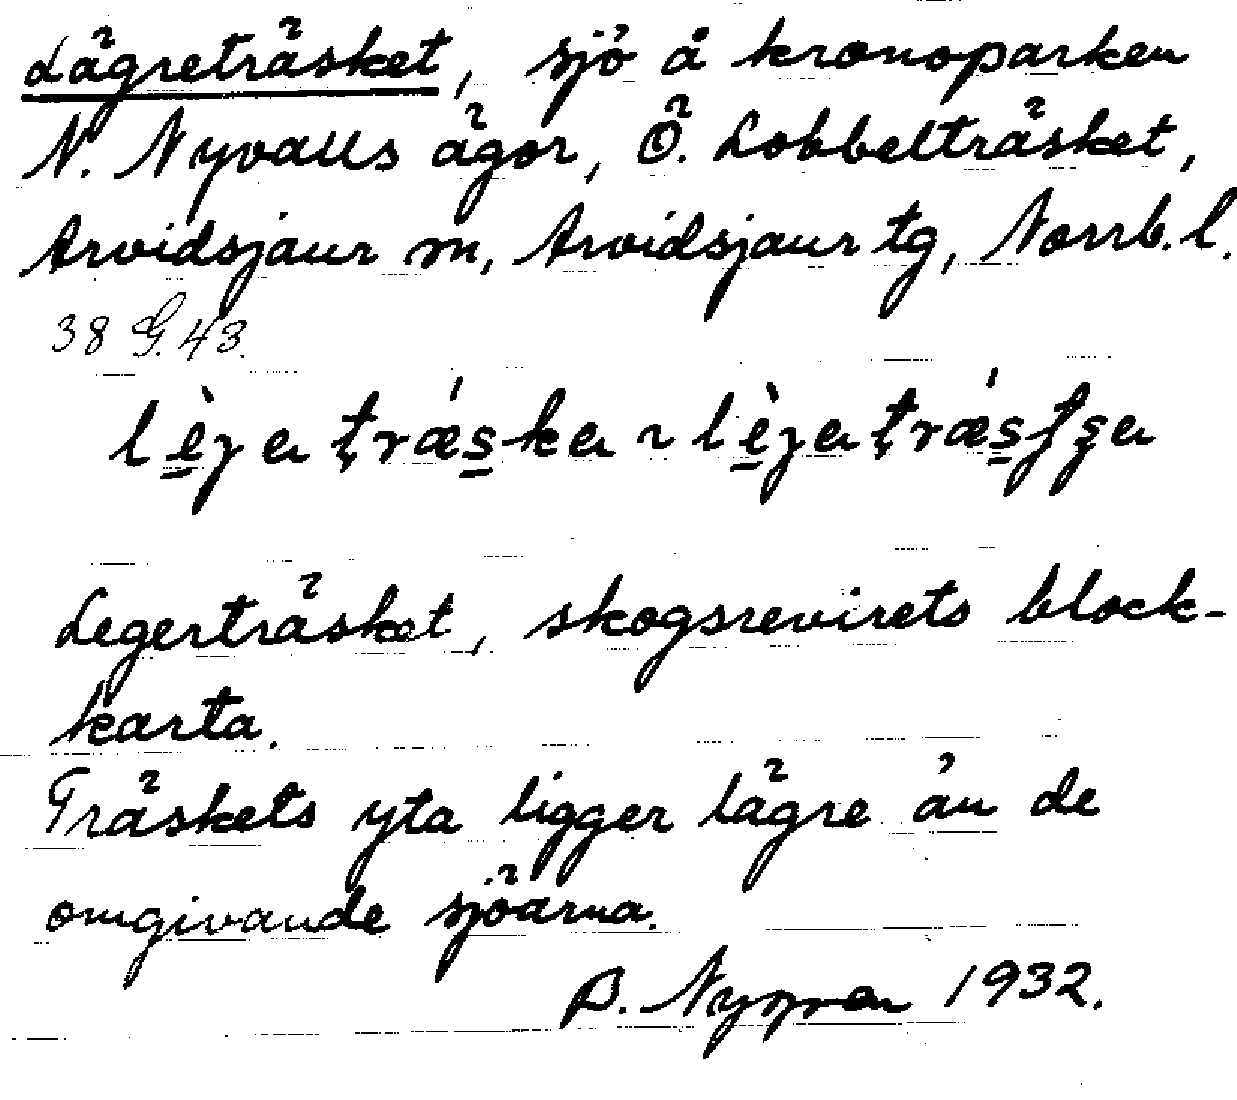 Lägreträsket, sjö å kronoparken
N. Nyvalls ägor, Ö. Lobbelträsket,
Arvidsjaur sn, Arvidsjaur tg, Norrb. l.
38 G. 43.
Legerträsket, skogsrevirets block-
karta.
Träskets yta ligger lägre än de
omgivande sjöarna.
1932.